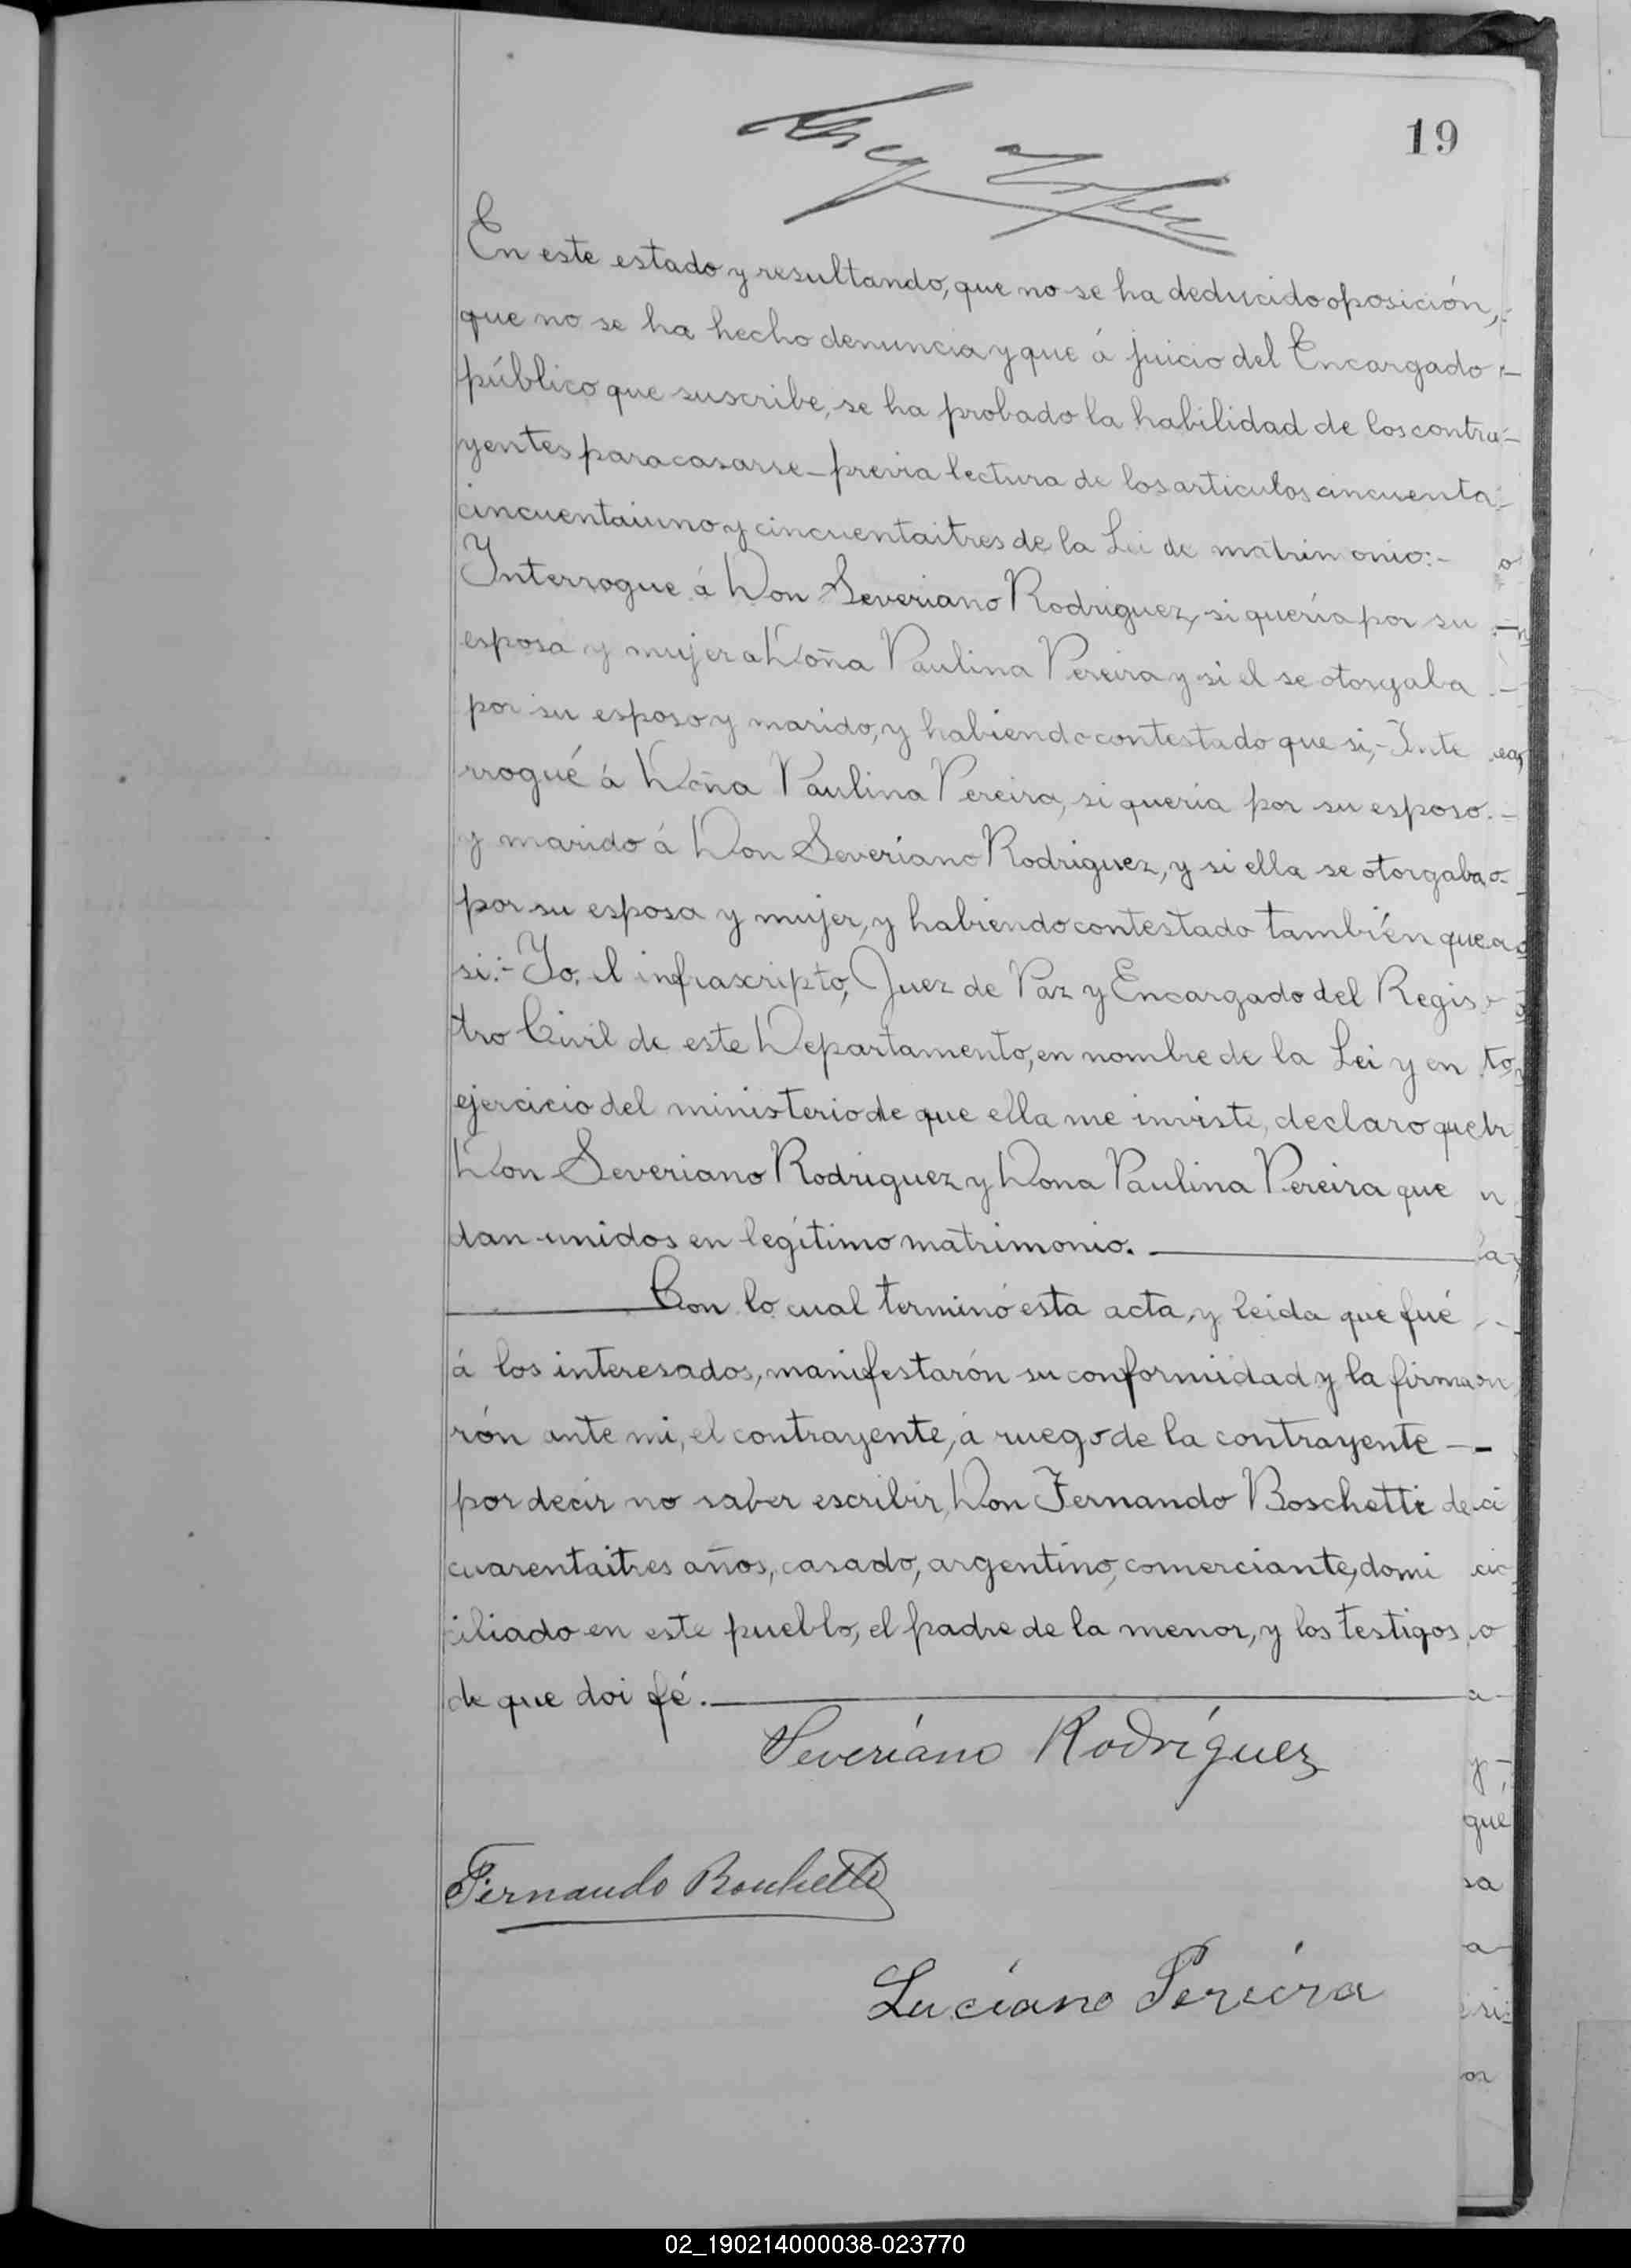 19
En este estado y resultando, que no se ha deducido oposición,
que no se ha hecho denuncia y que á juicio del Encargado
público que suscribe, se ha probado la habilidad de los contra-
yentes para casarse – previa lectura de los articulos cincuenta
cincuentaiuno y cincuentaitres de la Lei de matrimonio:-
Interrogue á Don Severiano Rodriguez, si quería por su
esposa y mujer a Doña Paulina Pereira y si el se otorgaba
por su esposo y marido, y habiendo contestado que si,- Inte
rrogué á Doña Paulina Pereira, si queria por su esposo
y marido á Don Severiano Rodriguez, y si ella se otorgaba
por su esposa y mujer, y habiendo contestado también que
si:- Yo, el infrascripto, Juez de Paz y Encargado del Regis
tro Civil de este Departamento, en nombre de la Lei y en
ejercicio del ministerio de que ella me inviste, declaro que
Don Severiano Rodriguez y Dona Paulina Pereira que
dan unidos en legítimo matrimonio.
Con lo cual terminó esta acta, y leida que fué
á los interesados, manifestarón su conformidad y la firma
rón ante mi, el contrayente, á ruego de la contrayente –
por decir no saber escribir, Don Fernando Boschetti de
cuarentaitres años, casado, argentino, comerciante, domi
ciliado en este pueblo, el padre de la menor, y los testigos
de que doi fé.
Severiano Rodríguez
Fernando Boschetti
Luciano Pereira
02_190214000038-023770